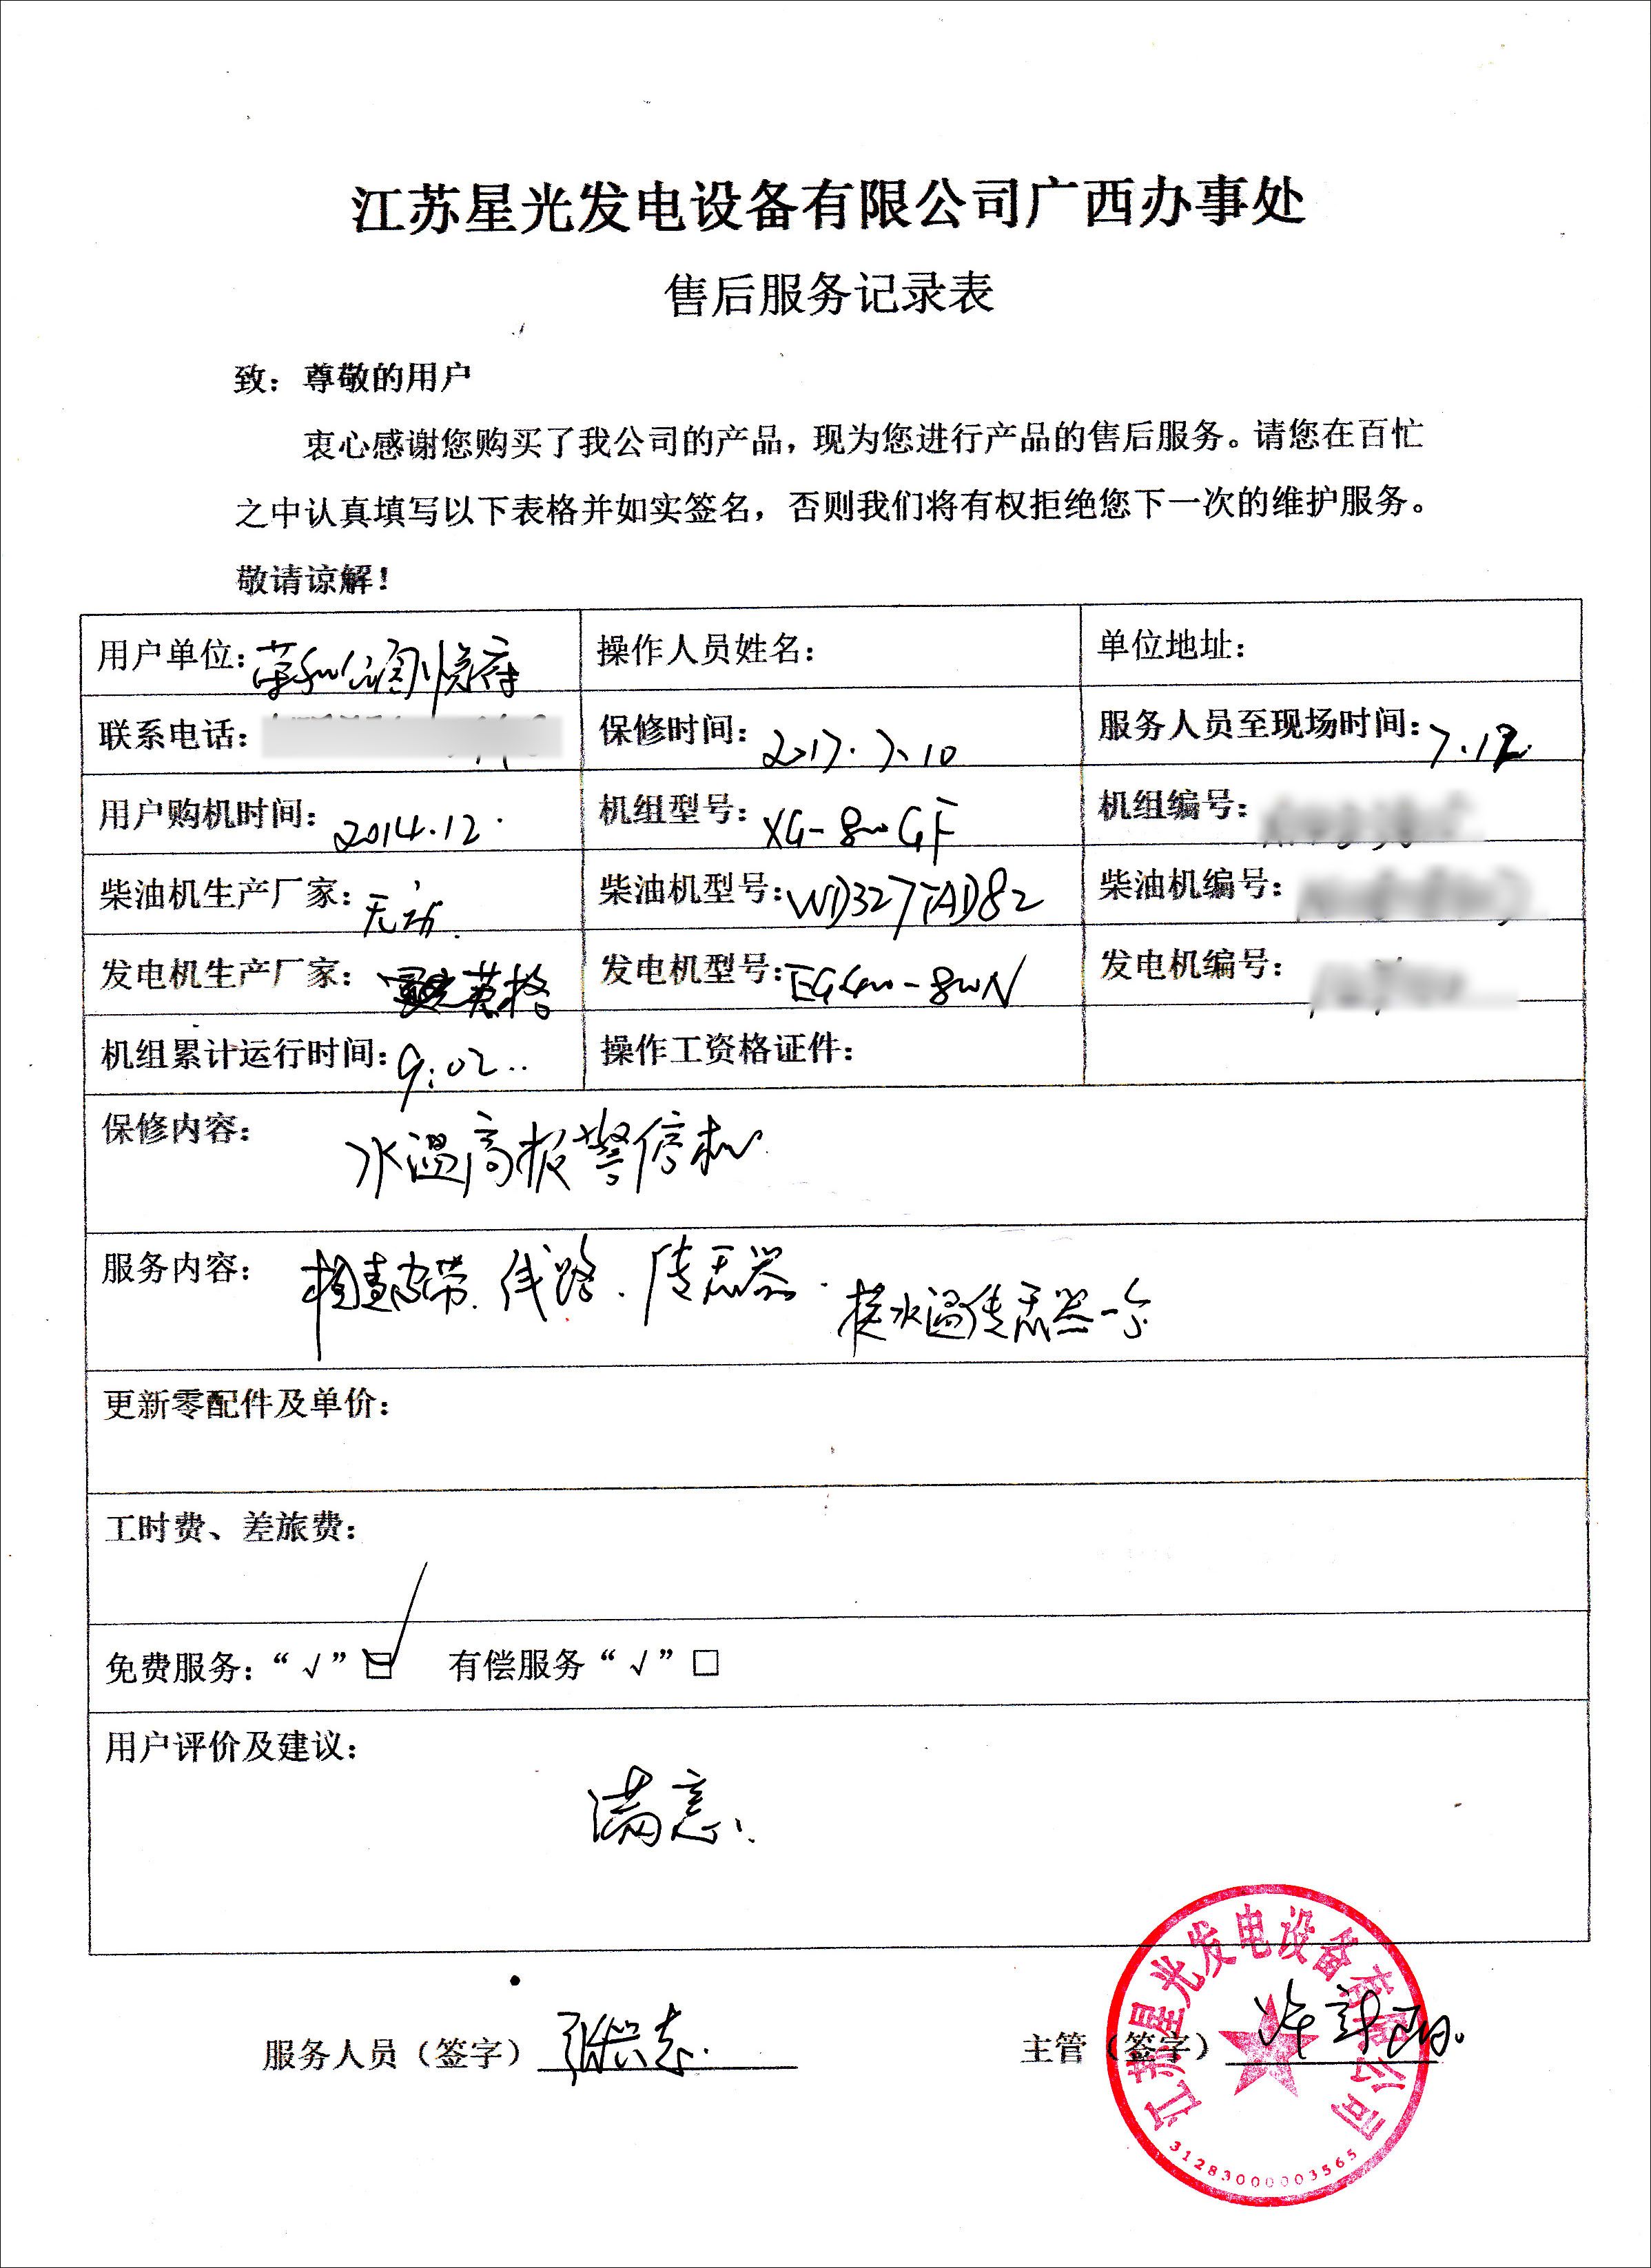 江苏星光发电设备有限公司广西办事处
售后服务记录表
致：尊敬的用户
衷心感谢您购买了我公司的产品，现为您进行产品的售后服务。请您在百忙
之中认真填写以下表格并如实签名，否则我们将有权拒绝您下一次的维护服务。
敬请谅解！
用户单位：荣和公园悦府 操作人员姓名： 单位地址：
联系电话： 保修时间：2017.7.10 服务人员至现场时间：7.12.
用户购机时间：2014.12. 机组型号：XG-800GF 机组编号：
柴油机生产厂家：无动. 柴油机型号：WD327TAD82 柴油机编号：
发电机生产厂家：英格 发电机型号：EG400-800N 发电机编号：
机组累计运行时间：9:02.. 操作工资格证件：
保修内容：水温高报警停机.
服务内容：检查皮带、线路、传感器. 换水温传感器一个
更新零配件及单价：
工时费、差旅费：
免费服务：“√”☑ 有偿服务“√”□
用户评价及建议：
满意.
服务人员（签字） 主管（签字）
江苏星光发电设备有限公司
3128300003565